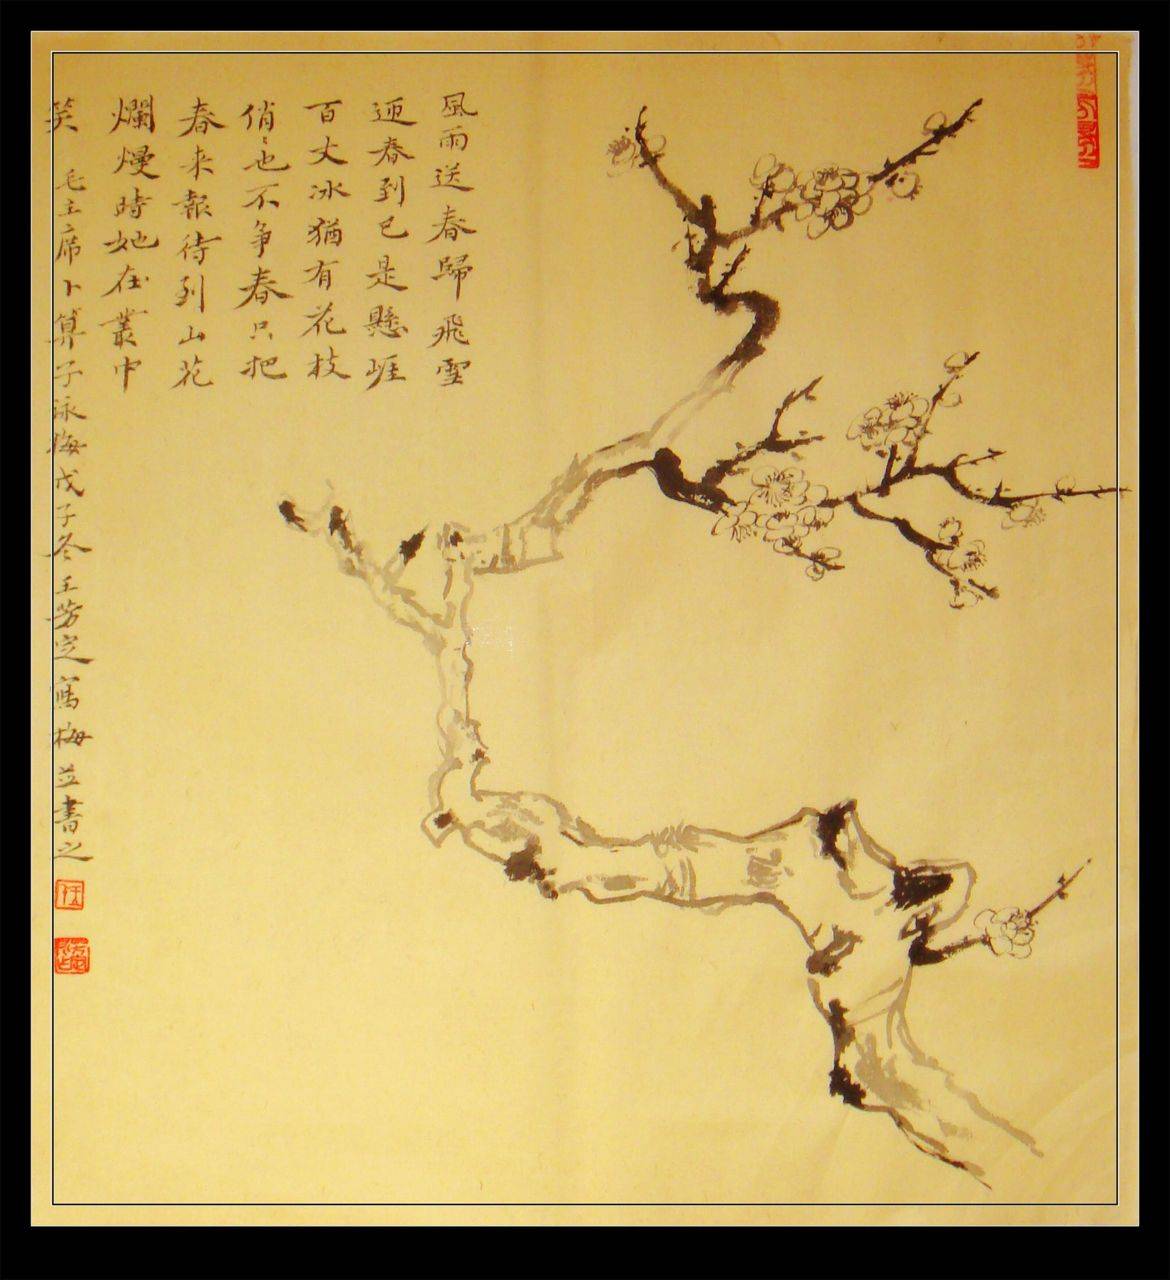 風雨送春歸飛雪
迎春到已是懸崕
百丈冰猶有花枝
俏〻也不争春只把
春来報待到山花
爛熳時她在叢中
笑 毛主席卜算子咏梅戊子冬王芳定寫梅並書之